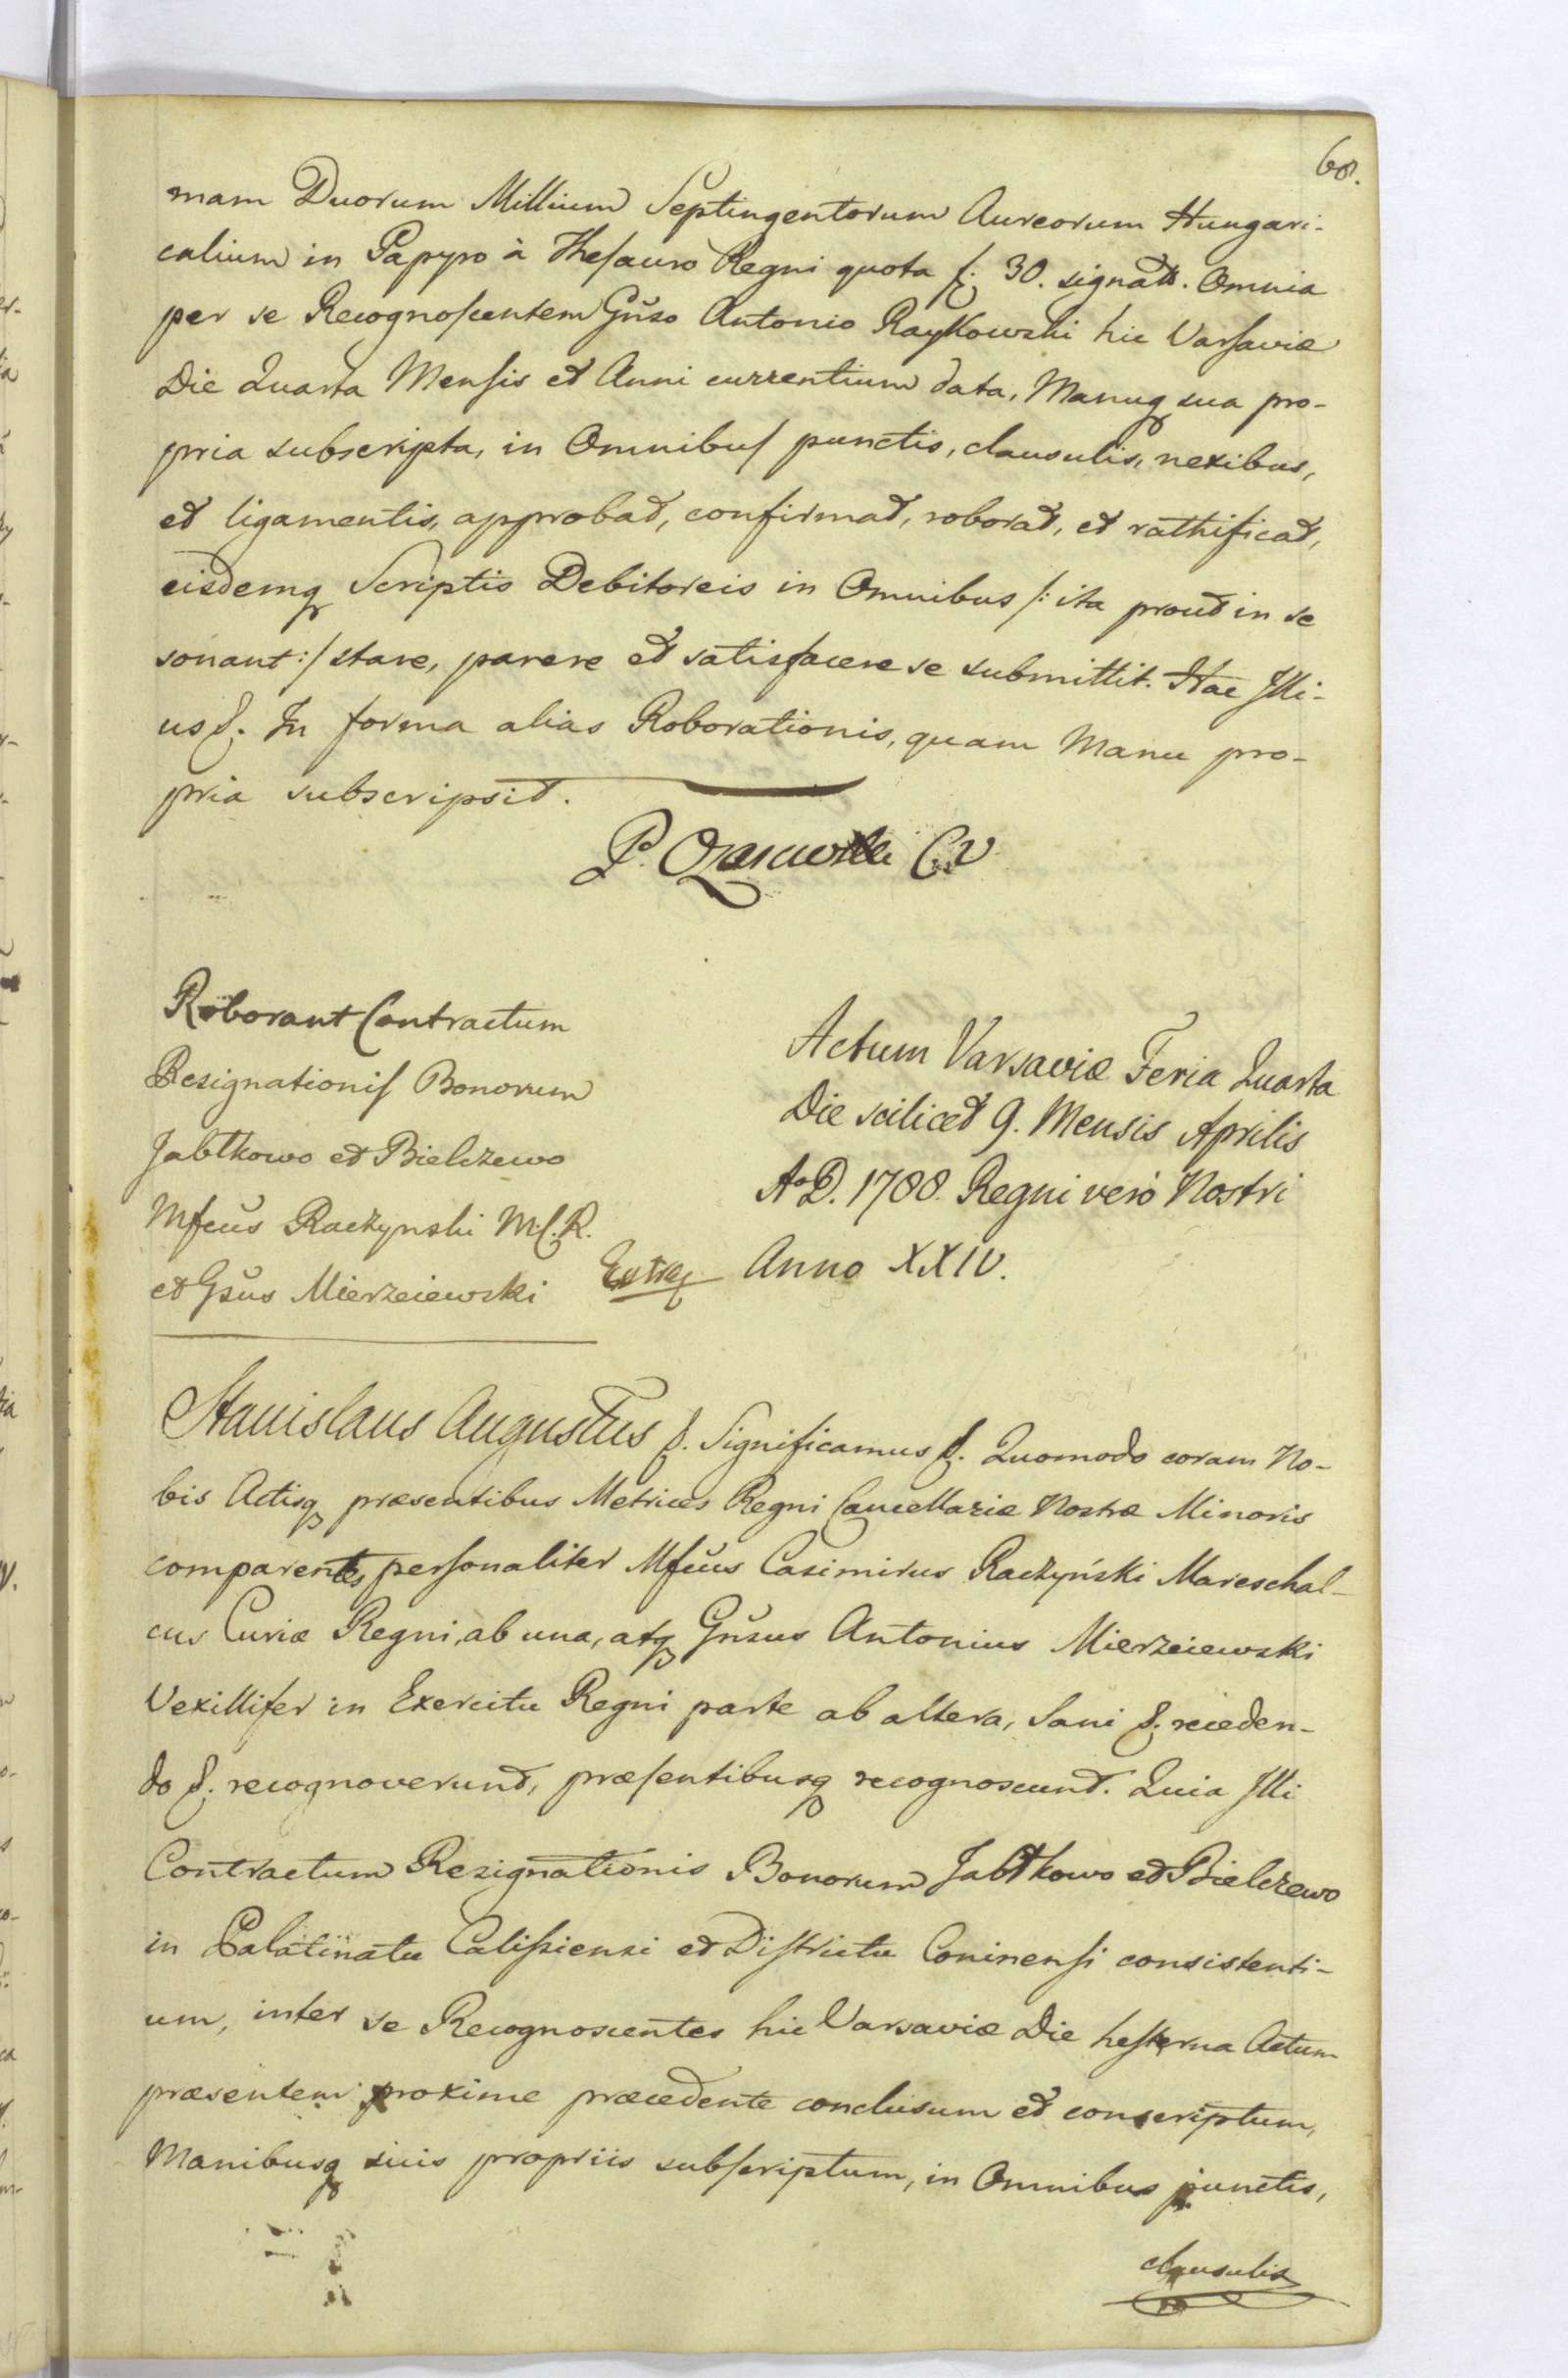 68.
mam Duorum Millium Septingentorum Aureorum Hungari-
calium in Papyro à Thesauro Regni quota f: 30. signatt. Omnia
per se Recognoscentem Gñso Antonio Raykowski hic Varsaviæ
Die Quarta Mensis et Anni currentium data, Manuq sua pro-
pria subscripta, in Omnibus punctis, clausulis, nexibus,
et ligamentis, approbat, confirmat, roborat, et rathificat,
eisdemq Scriptis Debitoreis in Omnibus /: ita prout in se
sonant :/ stare, parere et satisfacere se submittit. Hac Illi-
us &. In forma alias Roborationis, quam Manu pro-
pria subscripsit.
P. CV
Roborant Contractum
Resignationis Bonorum
Jabłkowo et Bielczewo
Mfcus Raczynski M.C.R.
et Gsus Mierzeiewski
Extrag
Actum Varsaviæ Feria Quarta
Die scilicet 9. Mensis Aprilis
A.D. 1788. Regni verò Nostri
Anno XXIV.
Stanislaus Augustus &. Significamus &. Quomodo coram No-
bis Actisq præsentibus Metrices Regni Cancellariæ Nostræ Minoris
comparentes personaliter Mfcus Casimirus Raczyński Mareschal-
cus Curiæ Regni, ab una, atq Gnsus Antonius Mierzeiewski
Vexillifer in Exercitu Regni parte ab altera, Sani &. receden-
do &. recognoverunt, præsentibusq recognoscunt. Quia Illi
Contractum Resignationis Bonorum Jabłkowo et Bielczewo
in Palatinatu Calissiensi et Districtu Coninensi consistenti-
um, inter se Recognoscentes hic Varsaviæ Die hesterna Actum
præsentem proxime præcedente conclusum et conscriptum,
Manibusq suis propriis subscriptum, in Omnibus punctis,
clausulis